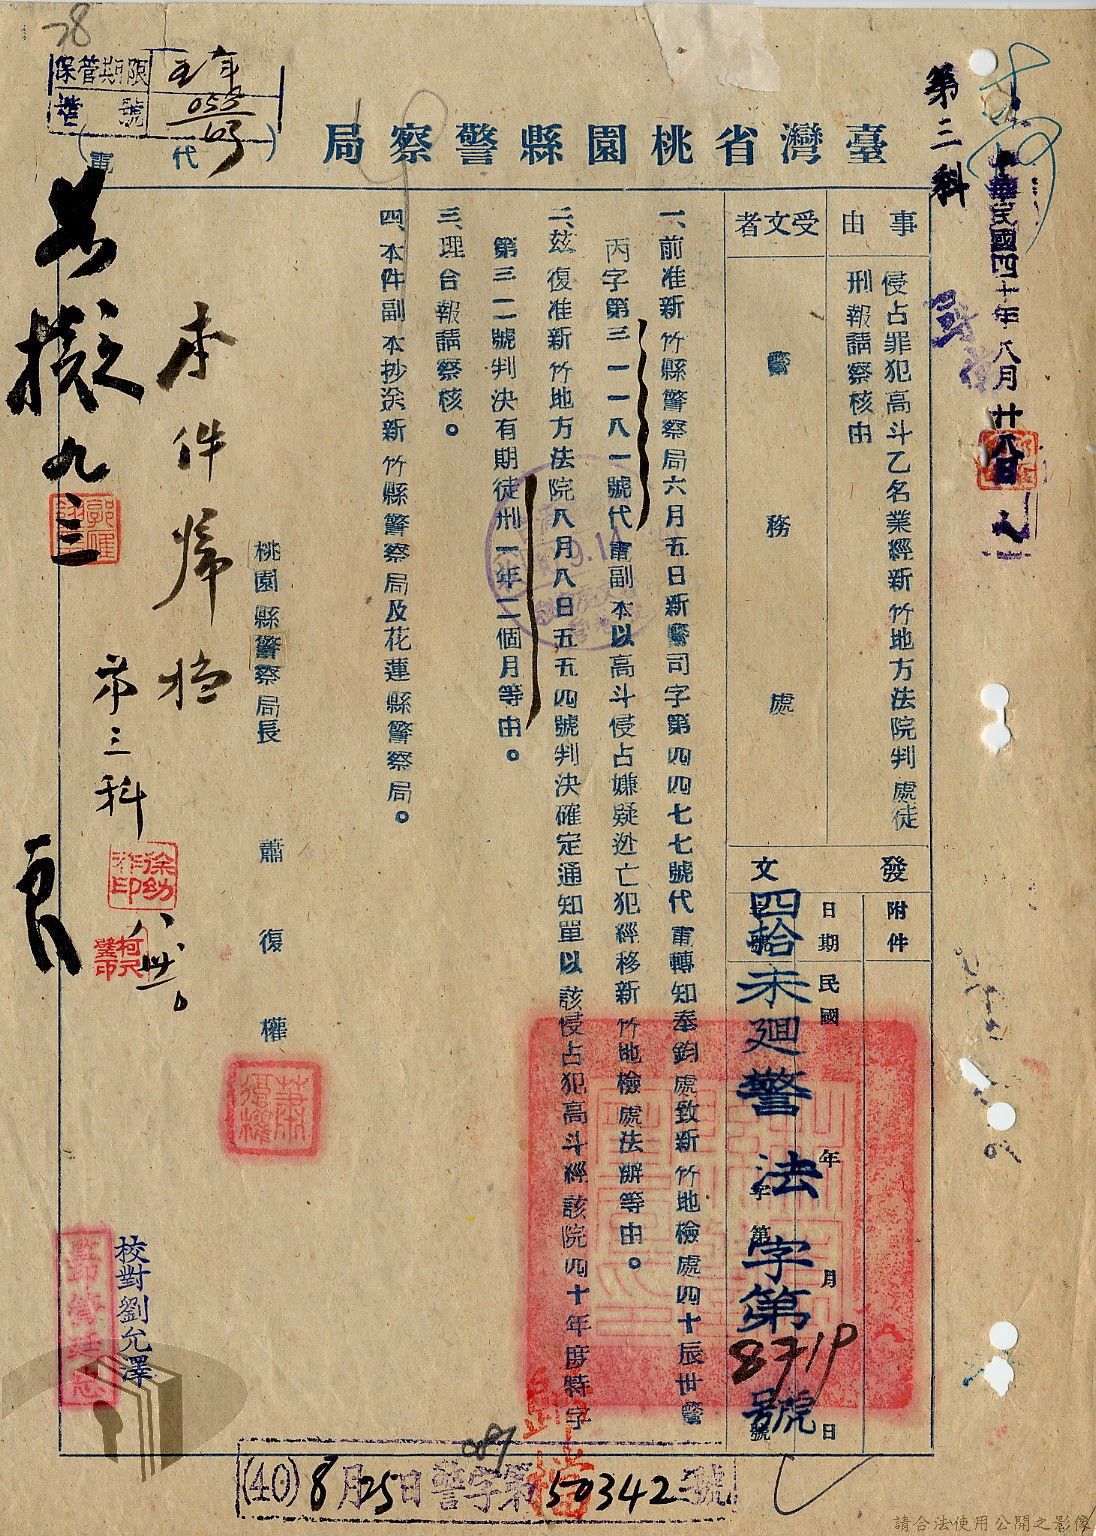 78
保管期限
五年
檔號
055
臺灣省桃園縣警察局
(代電)
第三科
中華民國四十年八月廿八日
事由
侵占罪犯高斗乙名業經新竹地方法院判處徒
刑報請察核由
受文者
警務處
發文
附件
日期
民國
年
月
日
四拾未迴警法字第8719號
一、前准新竹縣警察局六月五日新警司字第四四七七號代電轉知奉鈞處致新竹地檢處四十辰世警
丙字第三一一八一號代電副本以高斗侵占嫌疑逃亡犯經移新竹地檢處法辦等由。
二、茲復准新竹地方法院八月八日五五四號判決確定通知單以該侵占犯高斗經該院四十年度特字
第三一二號判決有期徒刑一年二個月等由。
三、理合報請察核。
四、本件副本抄送新竹縣警察局及花蓮縣警察局。
桃園縣警察局長
蕭復權
本件歸檔
第三科
八卅。
如擬
九三
校對劉允澤
歸檔
089
(40)8月25日警字第50342號
請合法使用公開之影像